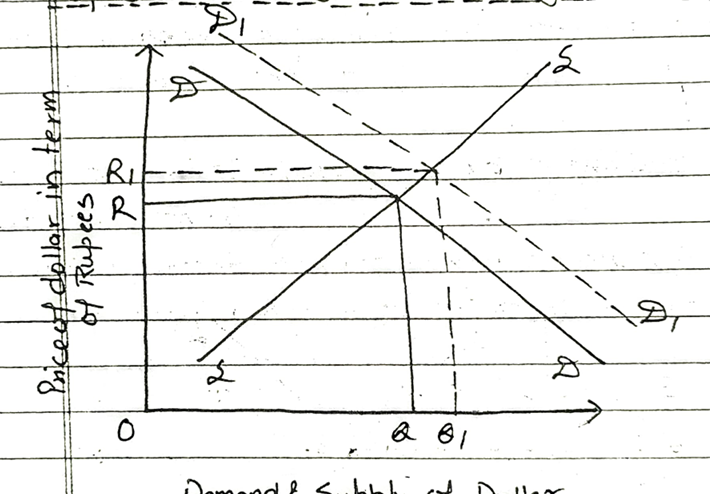 D1
D
S
R1
R
Price of dollar in term
of Rupees
D1
S
D
O
Q
Q1
Demand & Supply of Dollar